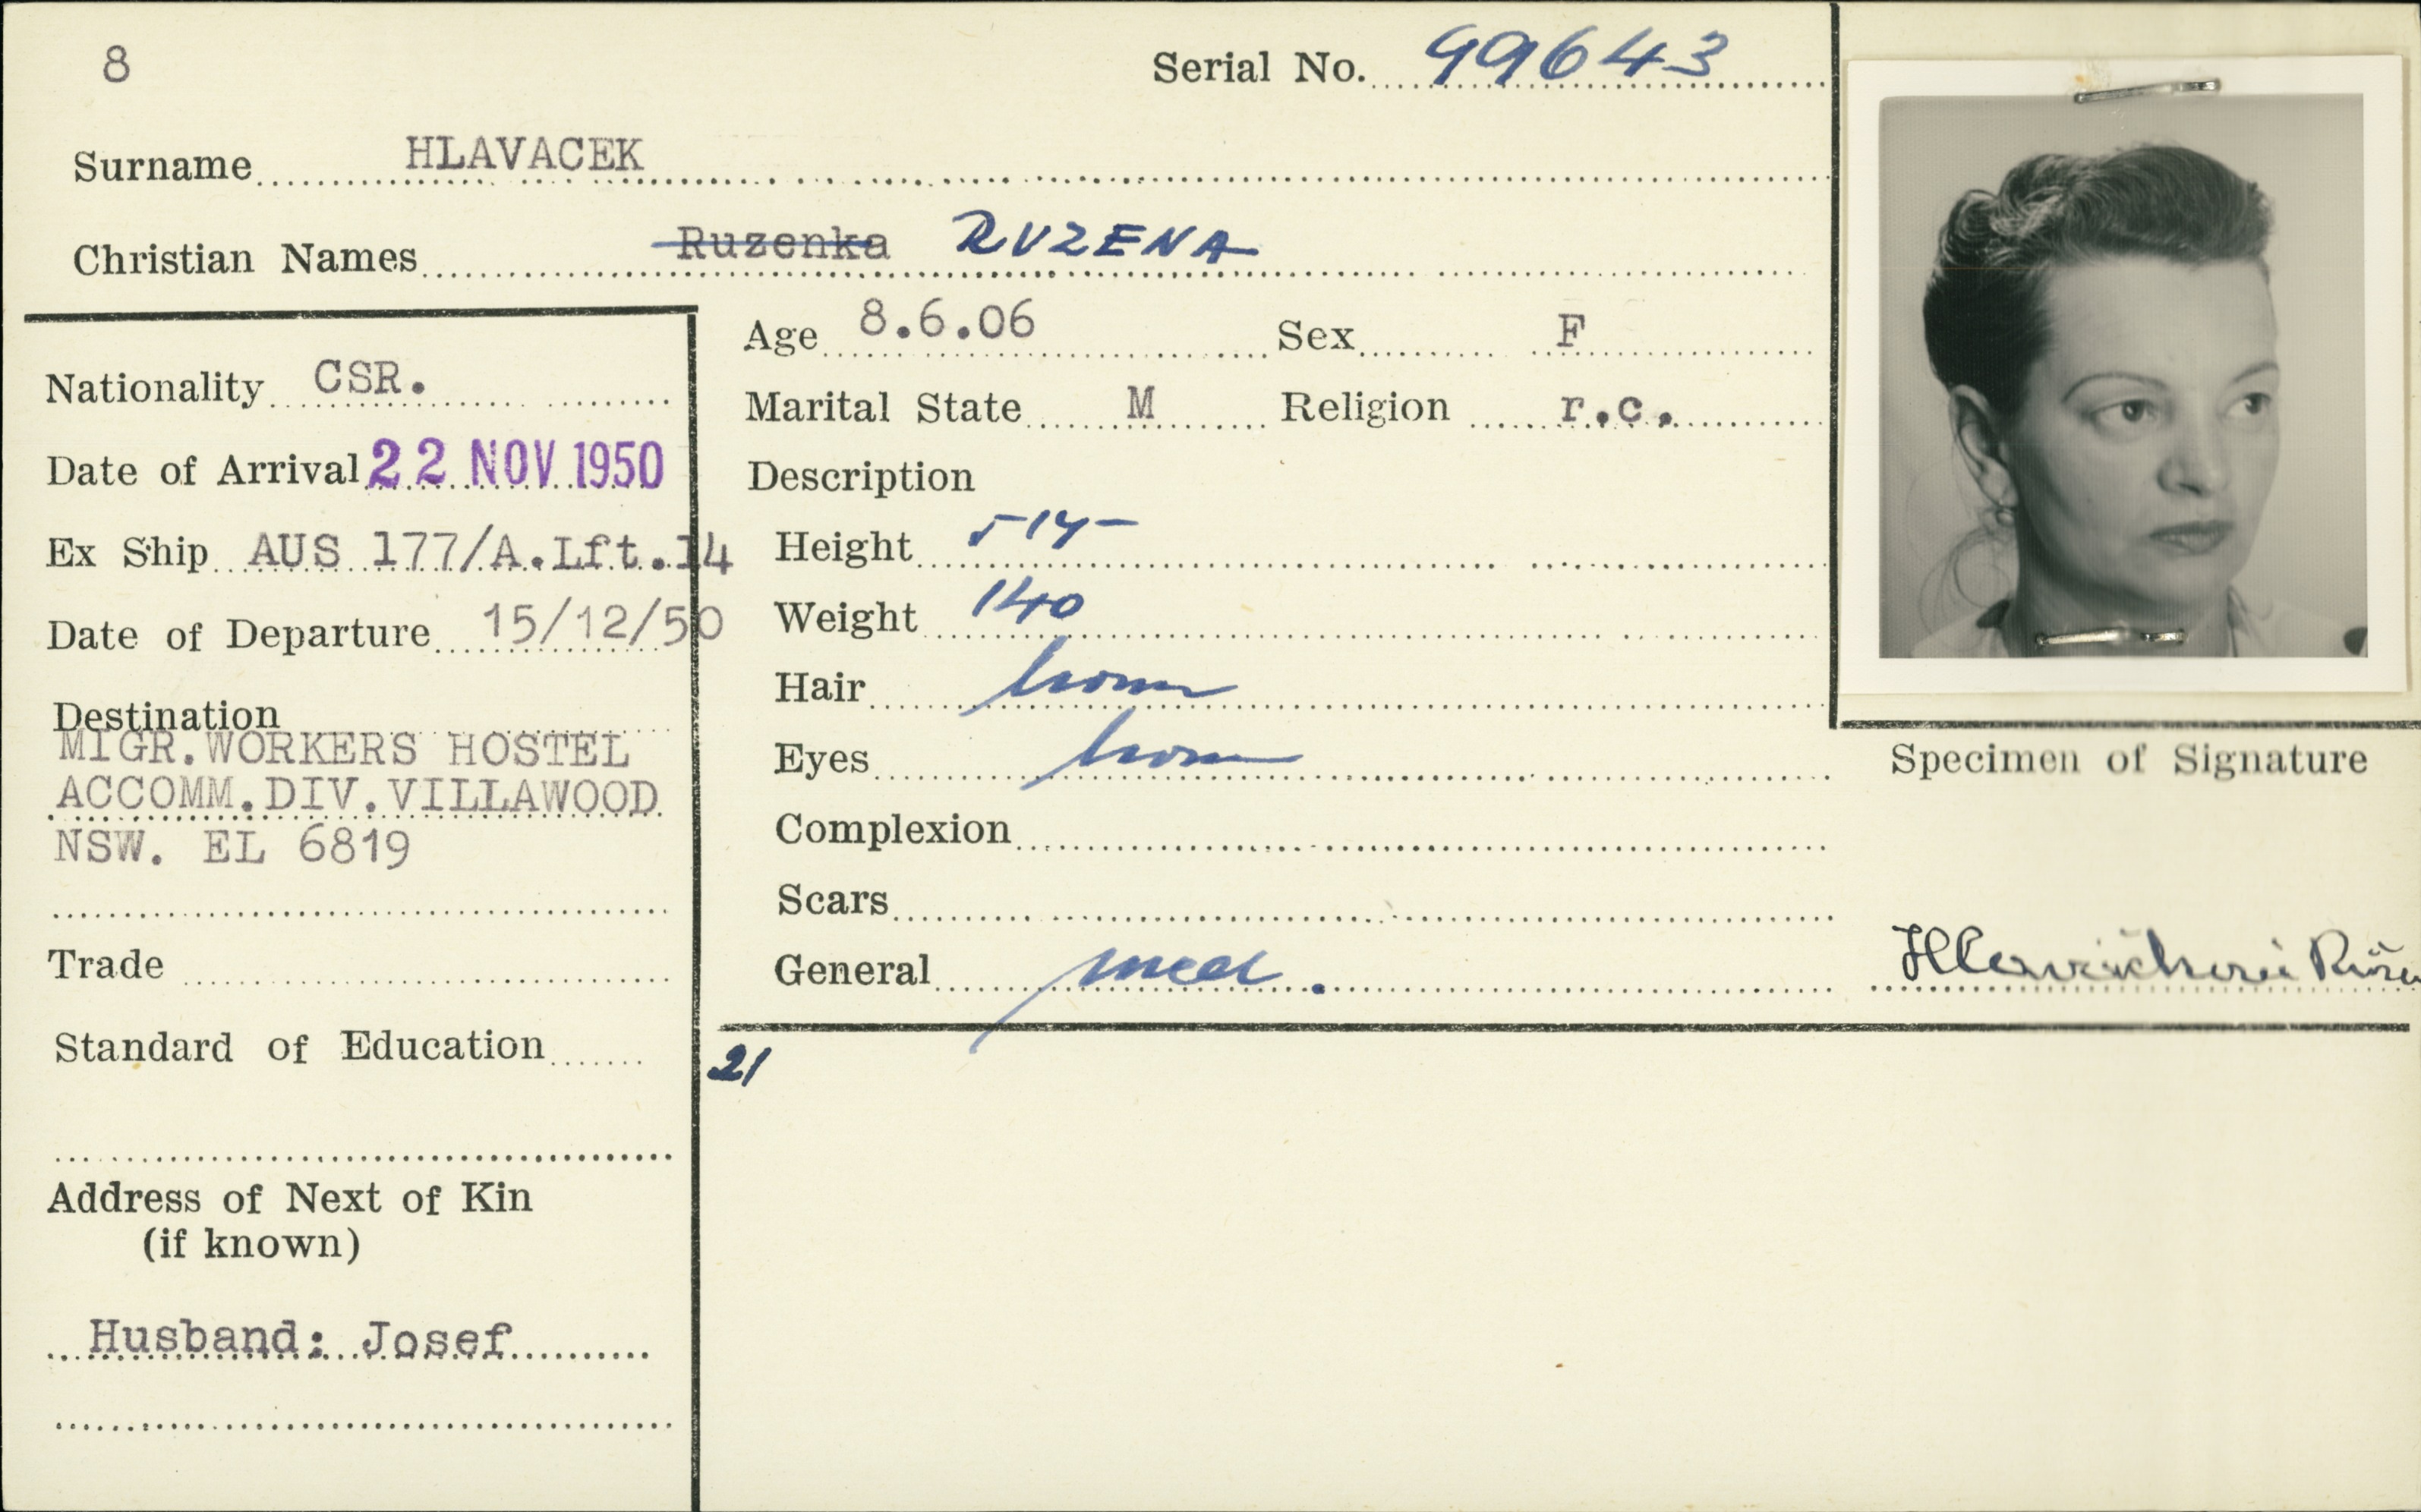 8
Serial No. 99643
Surname HLAVACEK
Christian Names Ruzenka RUZENA
Age 8.6.06 Sex F
Nationality CSR.
Marital State M Religion r.c.
Date of Arrival 22 NOV 1950
Description
Ex Ship AUS 177/A.Lft.14
Height
Date of Departure 15/12/50
Weight 140
Hair brown
Destination
MIGR.WORKERS HOSTEL
ACCOMM.DIV.VILLAWOOD
NSW. EL 6819
Eyes brown
Specimen of Signature
Complexion
Scars
Trade
General med.
Standard of Education
21
Address of Next of Kin
(if known)
Husband: Josef